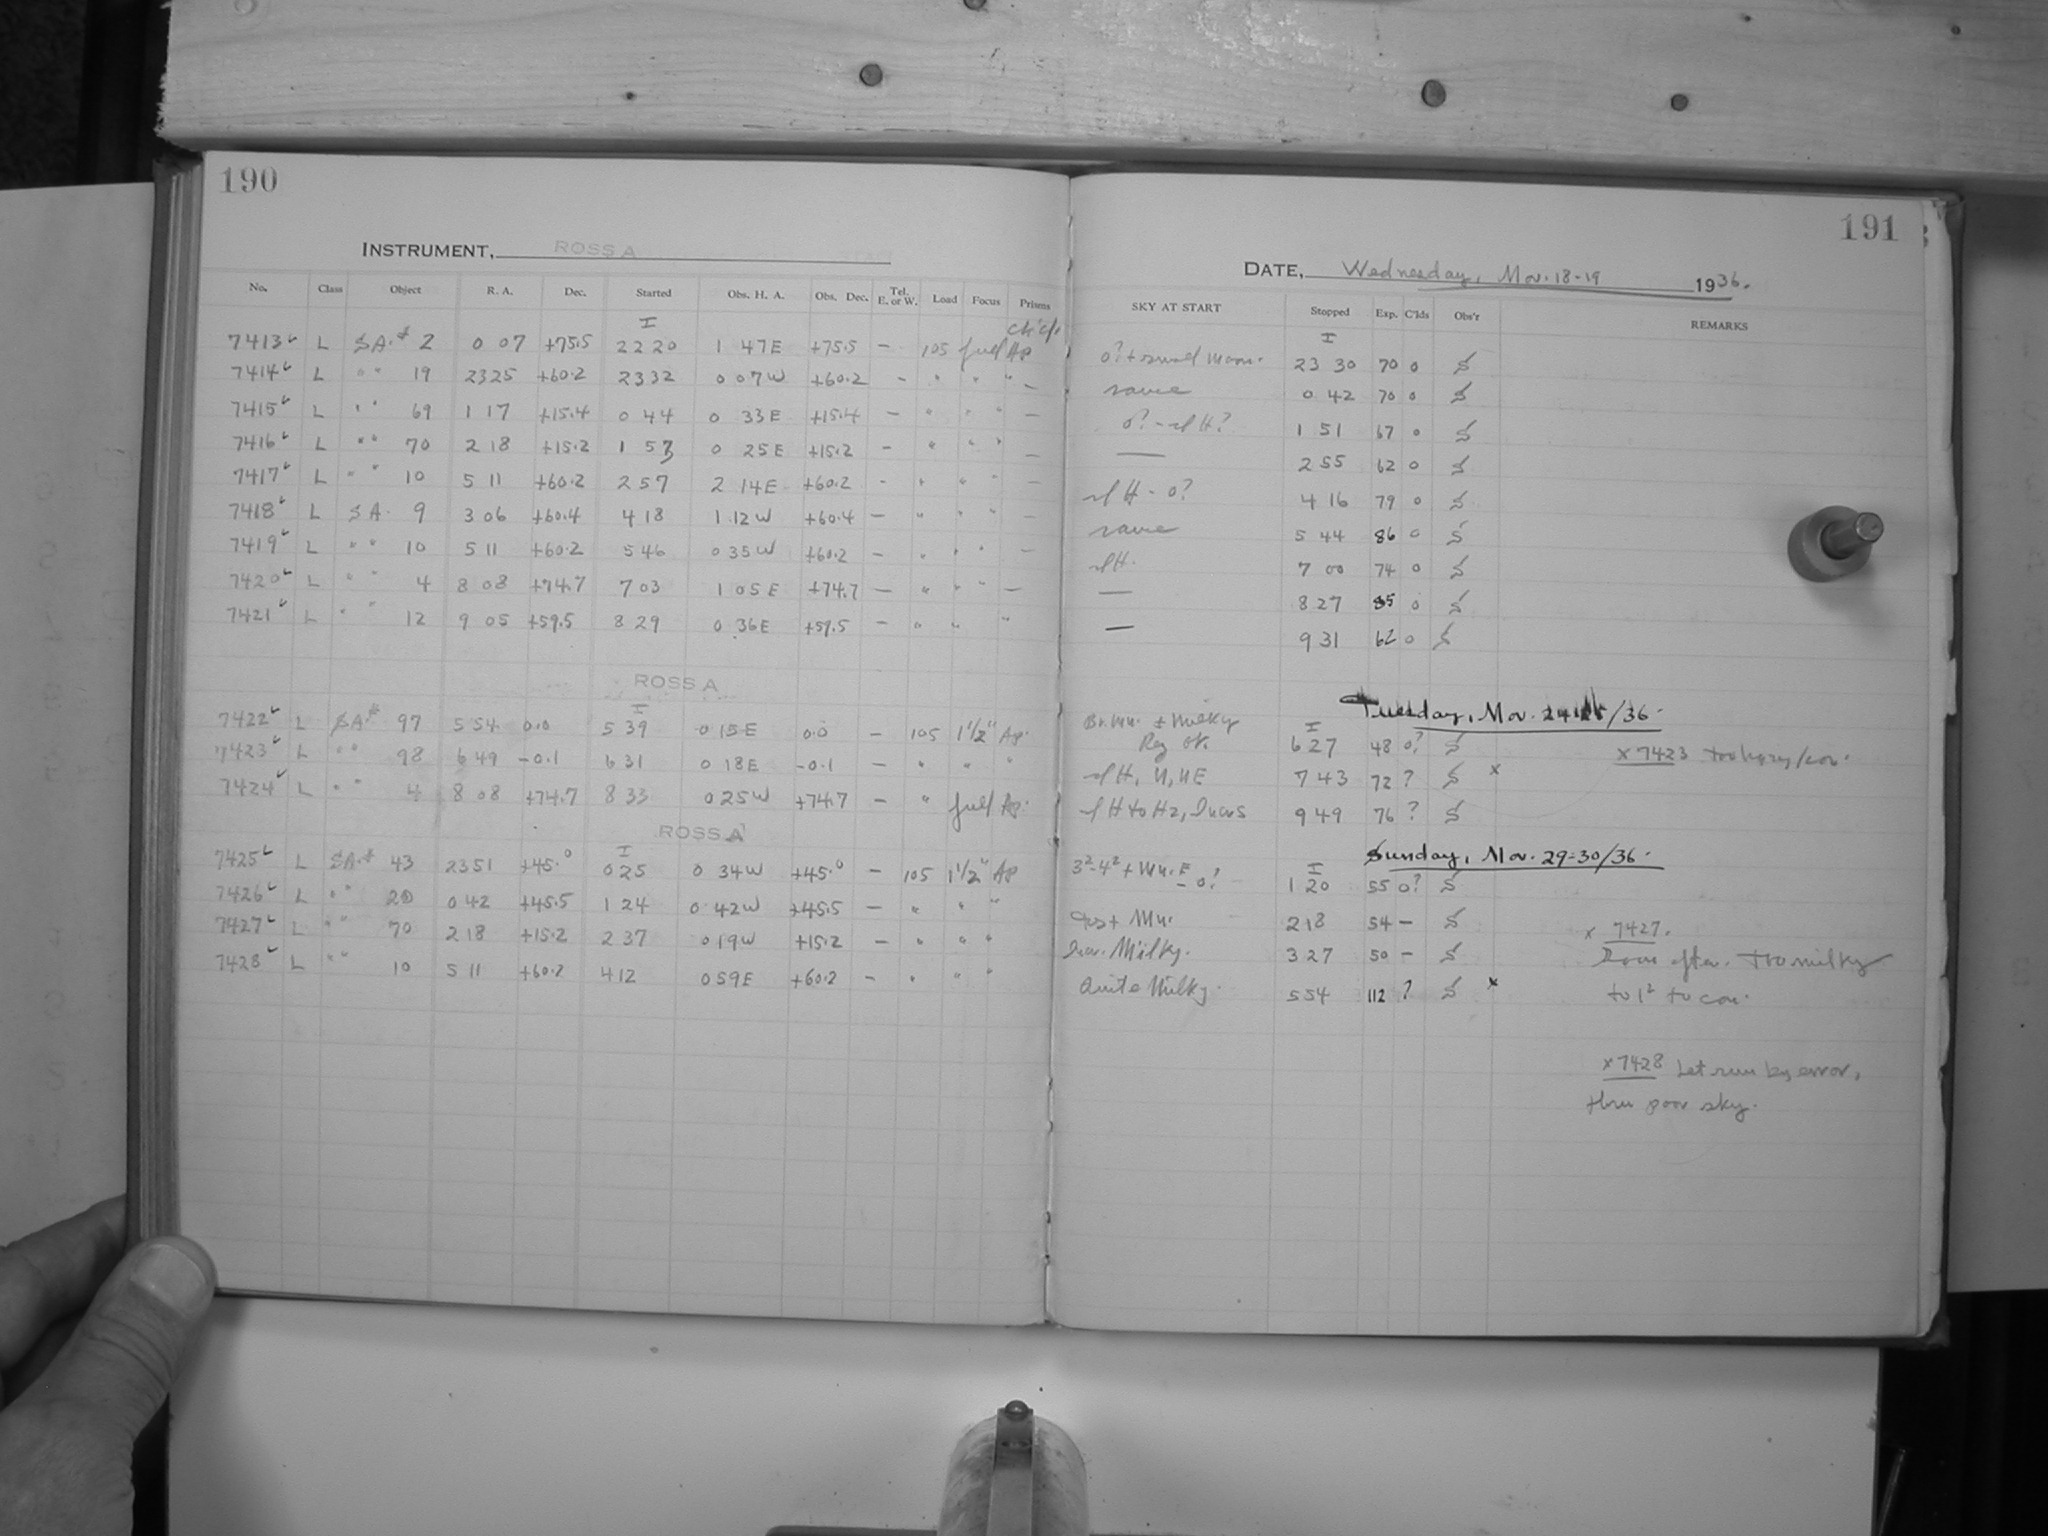 190
INSTRUMENT, ROSS A
No. Class Object R. A. Dec. Started Obs. H. A. Obs. Dec. Tel. E. or W. Load Focus Prisms
I
7413 L SA.# 2 0 07 +75.5 22 20 1 47E +75.5 – 105 full Ap
7414 L " " 19 23 25 +60.2 23 32 0 07W +60.2 – " " " –
7415 L " " 69 1 17 +15.4 0 44 0 33E +15.4 – " " " –
7416 L " " 70 2 18 +15.2 1 53 0 25E +15.2 – " " " –
7417 L " " 10 5 11 +60.2 2 57 2 14E +60.2 - " " " –
7418 L SA. 9 3 06 +60.4 4 18 1.12W +60.4 – " " " –
7419 L " " 10 5 11 +60.2 5 46 0 35W +60.2 – " " " –
7420 L " " 4 8 08 +74.7 7 03 1 05E +74.7 – " " " –
7421 L " " 12 9 05 +59.5 8 29 0 36E +59.5 – " " "
ROSS A
I
7422 L SA.# 97 5 54 0.0 5 39 0 15E 0.0 – 105 1½" Ap.
7423 L " " 98 6 49 -0.1 6 31 0 18E -0.1 – " " "
7424 L " " 4 8 08 +74.7 8 33 0 25W +74.7 – " full Ap.
ROSS A
I
7425 L SA.# 43 23 51 +45.0 0 25 0 34W +45.0 – 105 1½" Ap
7426 L " " 20 0 42 +45.5 1 24 0 42W +45.5 – " " "
7427 L " " 70 2 18 +15.2 2 37 0 19W +15.2 – " " "
7428 L " " 10 5 11 +60.2 4 12 0 59E +60.2 - " " "
191
DATE, Wednesday, Nov. 18-19 1936.
SKY AT START Stopped Exp. C'lds Obs'r REMARKS
I
23 30 70 0 S
same 0 42 70 0 S
0? - slH? 1 51 67 0 S
— 2 55 62 0 S
slH - 0? 4 16 79 0 S
same 5 44 86 0 S
slH. 7 00 74 0 S
— 8 27 85 0 S
— 9 31 62 0 S
Tuesday, Nov. 24 /36.
I
6 27 48 0? S x 7423 too hazy/con.
slH, N, NE 7 43 72 ? S x
slH to Hz, 9 49 76 ? S
Sunday, Nov. 29-30/36.
I
1 20 55 0? S
2 18 54 – S x 7427.
Milky. 3 27 50 – S after. Too milky
Quite Milky. 5 54 112 ? S x to 1² to con.
x 7428 Let run by error,
thru poor sky.